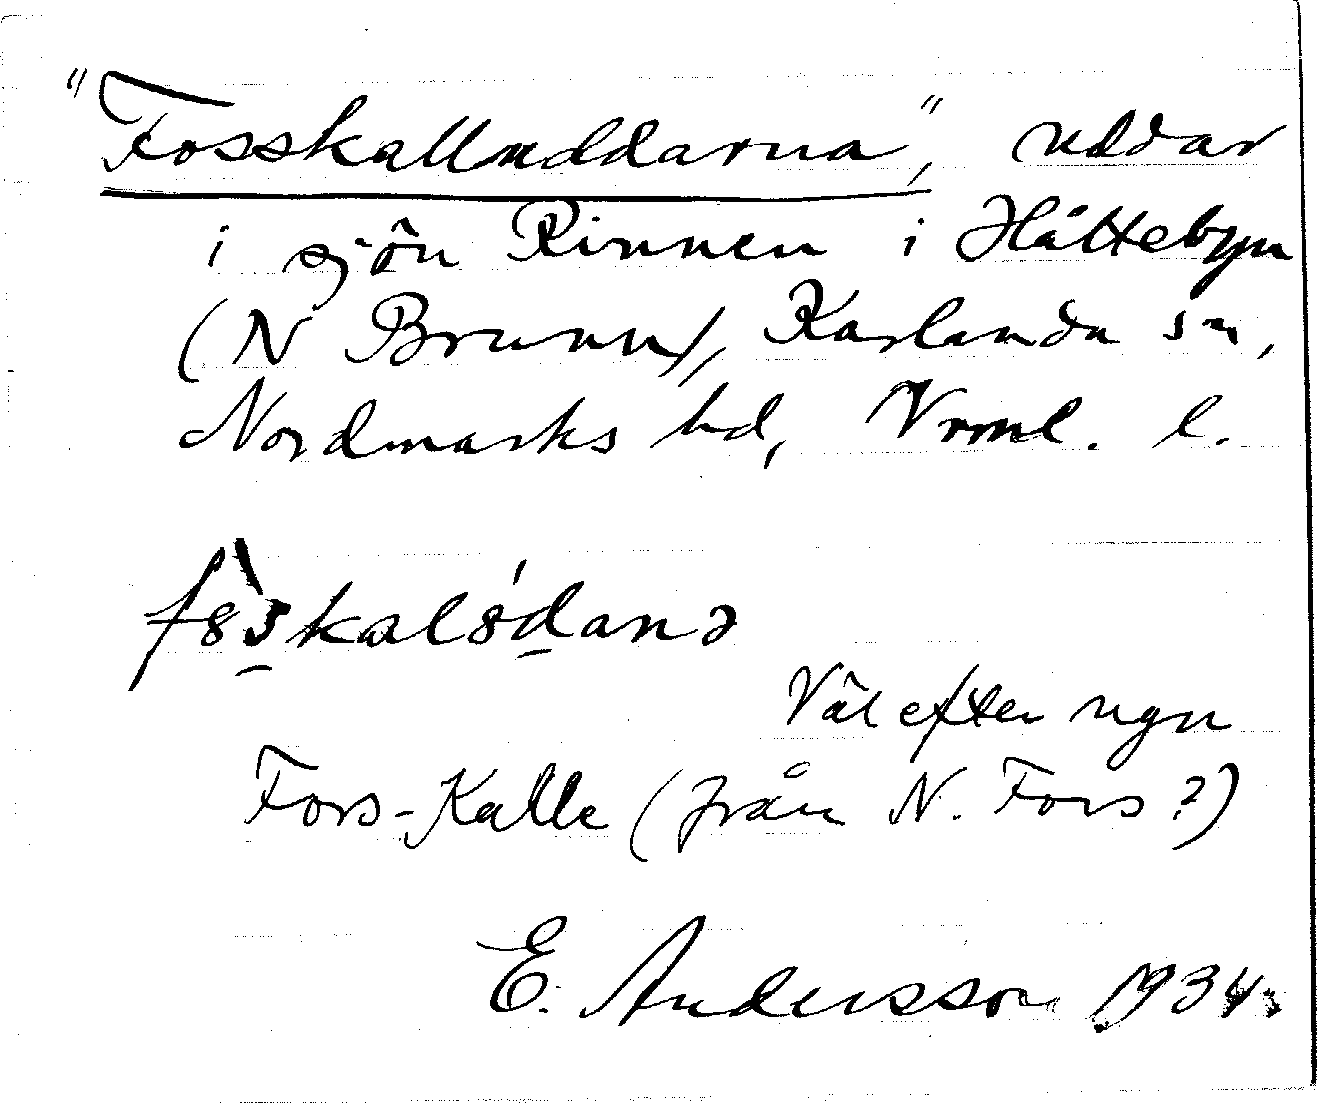 "Fosskalluddarna", uddar
i sjön Rinnen i Håttebyn
(N Brunn), Karlanda sn,
Nordmarks hd, Vrml. l.
Väl efter ngn
Fors-Kalle (från N. Fors?)
E. Andersson 1934.